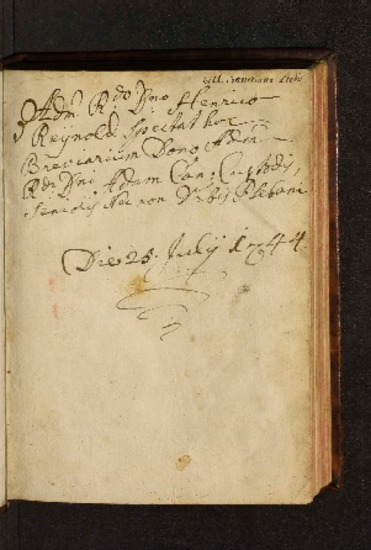 Adm Rdo Dno Henrico
Reÿnold spectat hoc
Breviarium Dono Adm
Rdi Dni Adam Can, Custodis,
Senioris Nec non Urbis Plebani
Die 25. Julij 1744